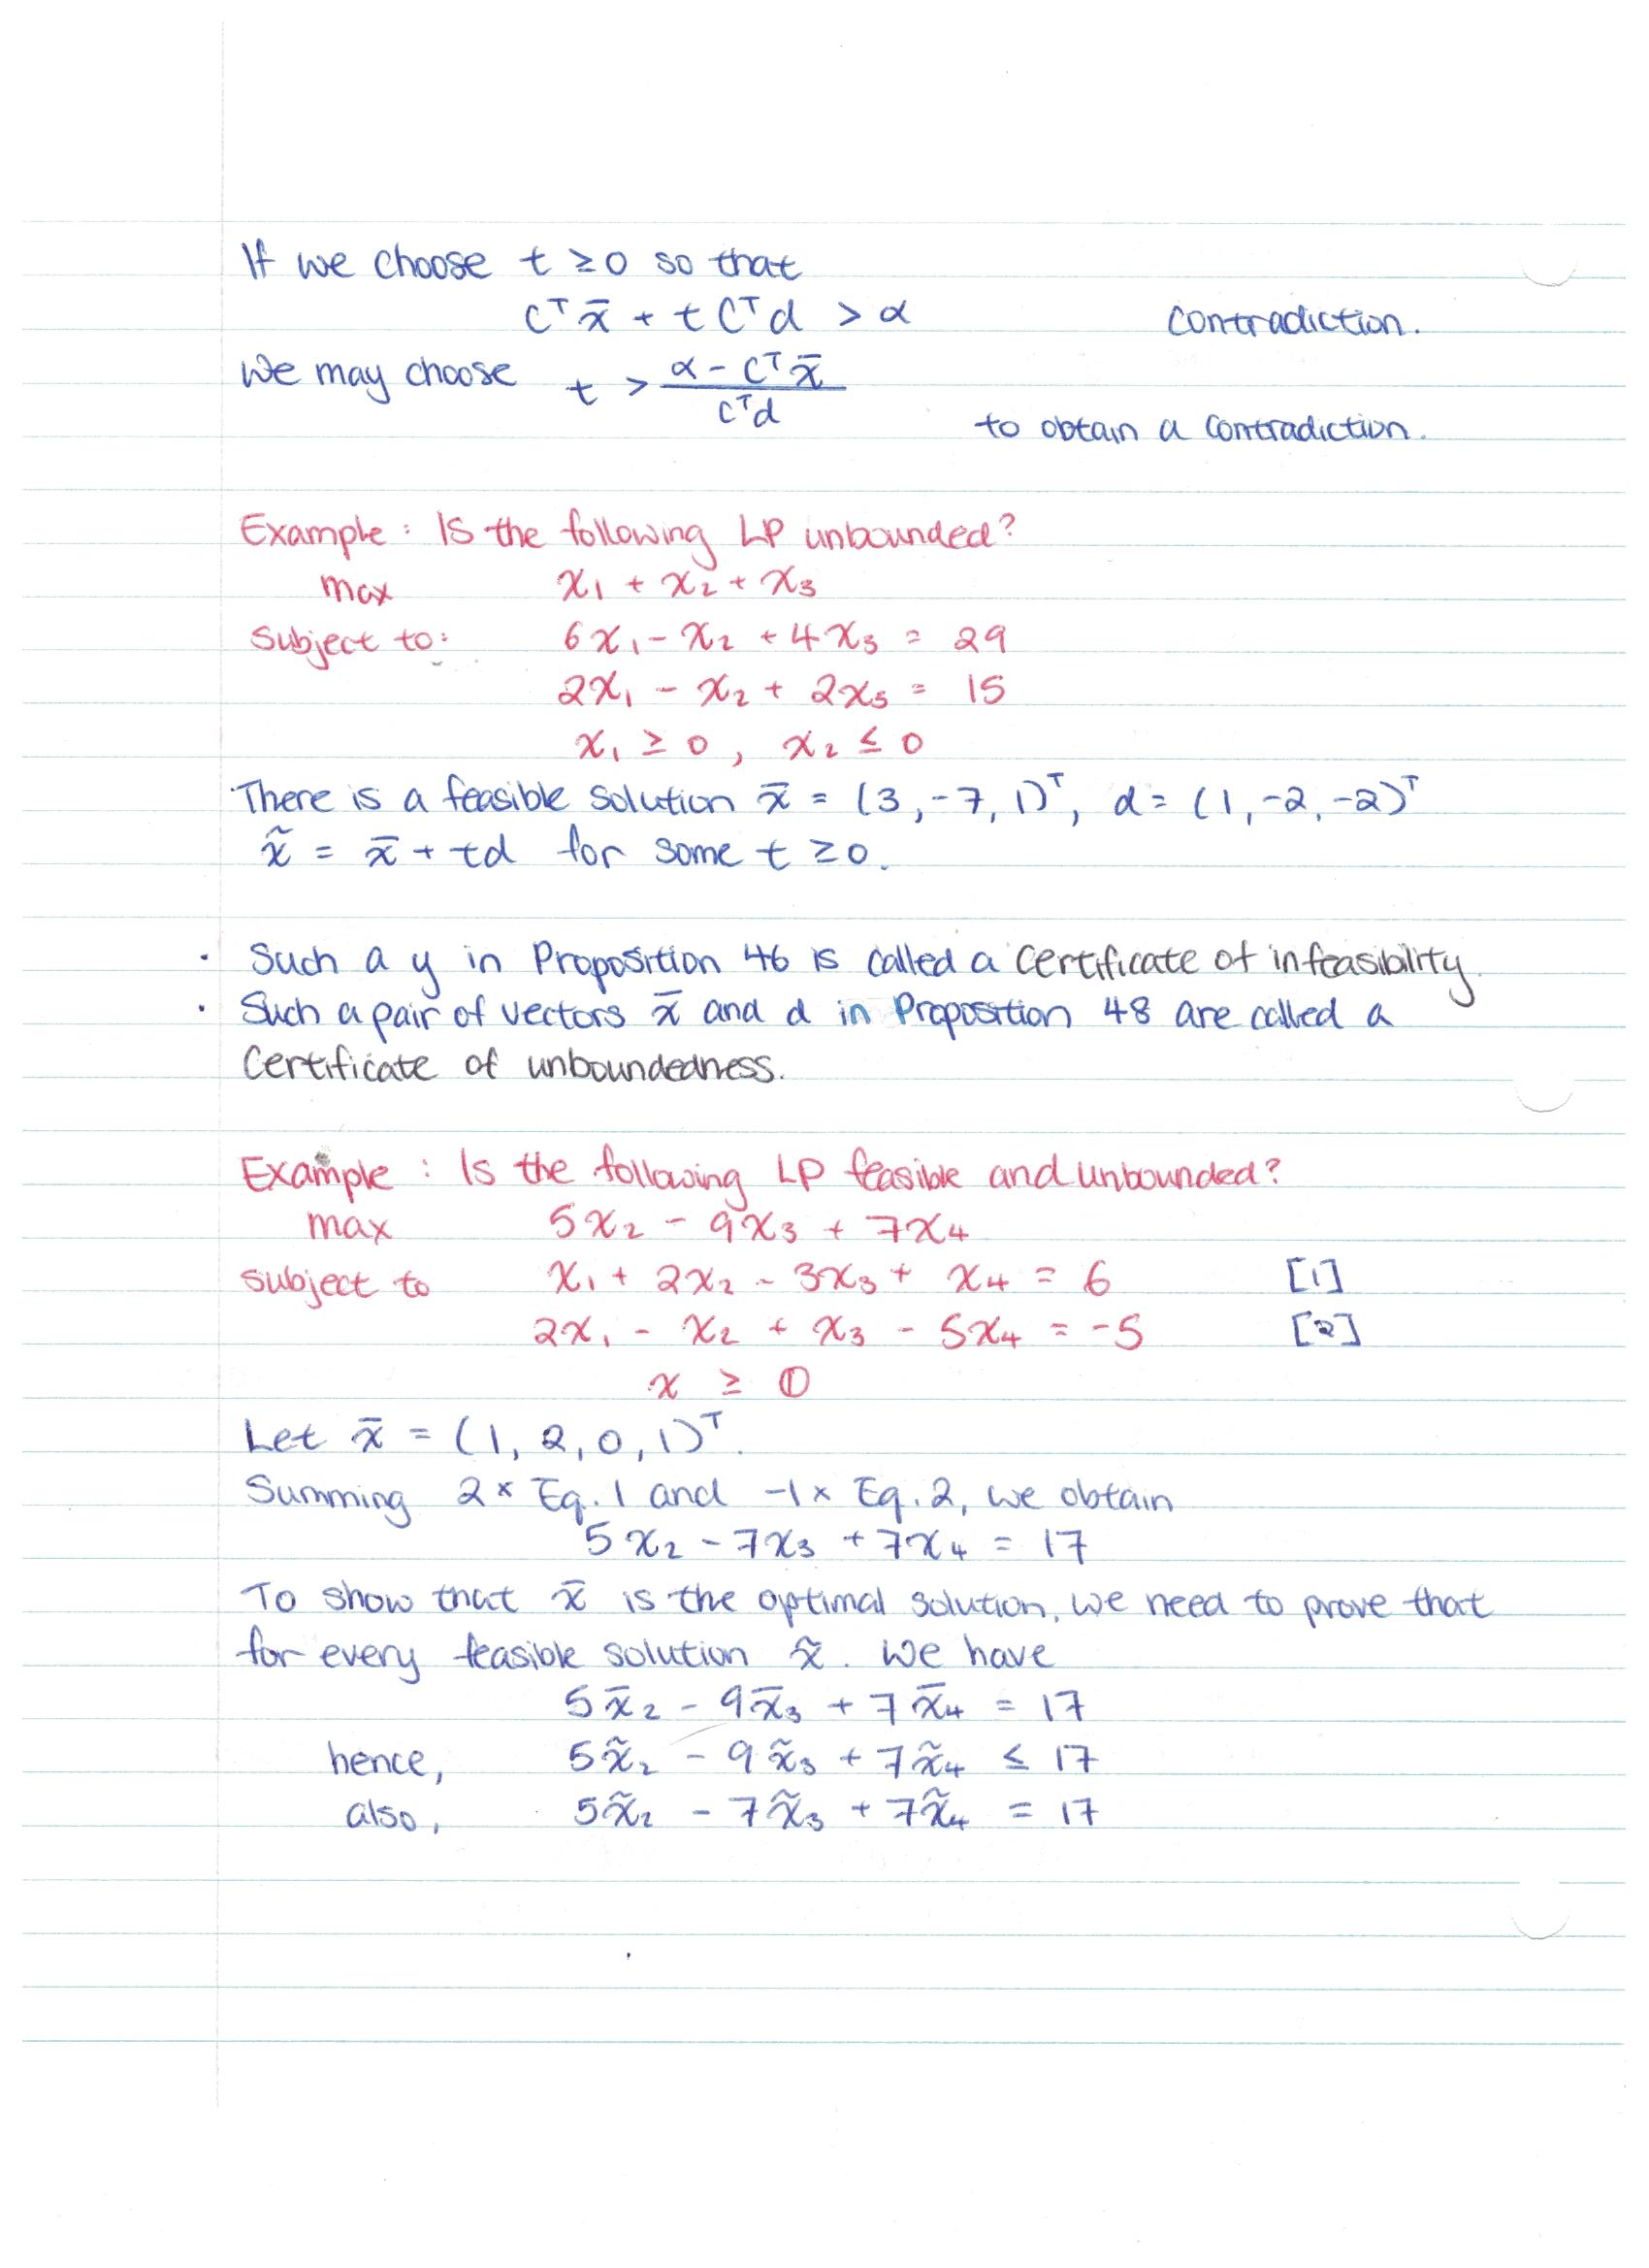 If we choose t ≥ 0 so that
Cᵀx̄ + t Cᵀd > α contradiction.
We may choose t > (α - Cᵀx̄) / (Cᵀd)
to obtain a contradiction.
Example: Is the following LP unbounded?
max x₁ + x₂ + x₃
Subject to: 6x₁ - x₂ + 4x₃ = 29
2x₁ - x₂ + 2x₃ = 15
x₁ ≥ 0, x₂ ≤ 0
There is a feasible solution x̄ = (3, -7, 1)ᵀ, d = (1, -2, -2)ᵀ
x̃ = x̄ + td for some t ≥ 0.
· Such a y in Proposition 46 is called a certificate of infeasibility.
· Such a pair of vectors x̄ and d in Proposition 48 are called a
Certificate of unboundedness.
Example: Is the following LP feasible and unbounded?
max 5x₂ - 9x₃ + 7x₄
subject to x₁ + 2x₂ - 3x₃ + x₄ = 6 [1]
2x₁ - x₂ + x₃ - 5x₄ = -5 [2]
x ≥ 𝟘
Let x̄ = (1, 2, 0, 1)ᵀ.
Summing 2 × Eq. 1 and -1 × Eq. 2, we obtain
5x₂ - 7x₃ + 7x₄ = 17
To show that x̄ is the optimal solution, we need to prove that
for every feasible solution x̃. We have
5x̄₂ - 9x̄₃ + 7x̄₄ = 17
hence, 5x̃₂ - 9x̃₃ + 7x̃₄ ≤ 17
also, 5x̃₂ - 7x̃₃ + 7x̃₄ = 17